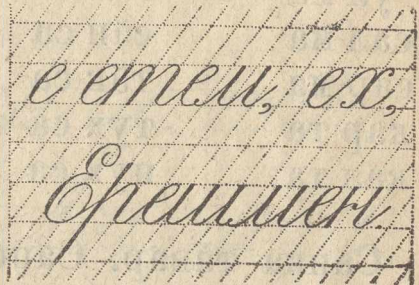 е етем, ех,
Ерешмен.